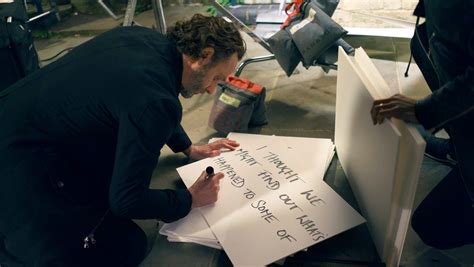 I THOUGHT WE
MIGHT FIND OUT WHAT'S
HAPPENED TO SOME OF